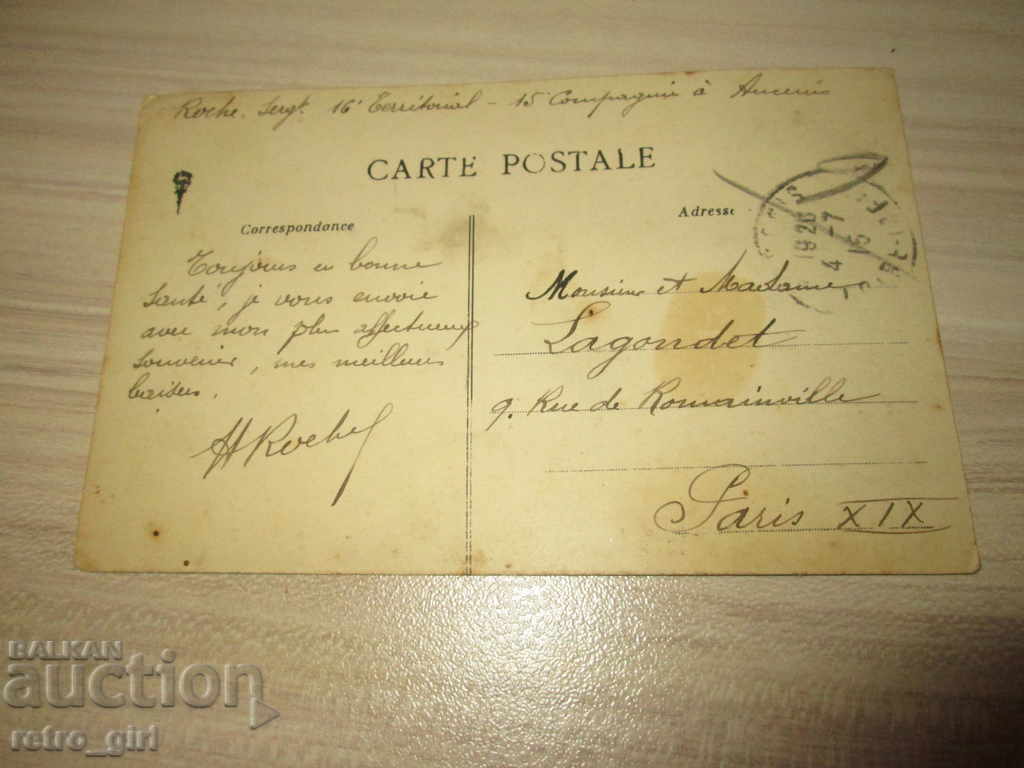 Roche. Sergt. 16e Territorial - 15e Compagnie à Ancenis
CARTE POSTALE
Correspondance
Adresse
Toujours en bonne
santé, je vous envoie
avec mon plus affectueux
souvenir, mes meilleurs
baisers.
HRoche
Monsieur et Madame
Lagondet
9. Rue de Romainville
Paris XIX
19 26
4 27
15
BALKAN
auction
retro_girl